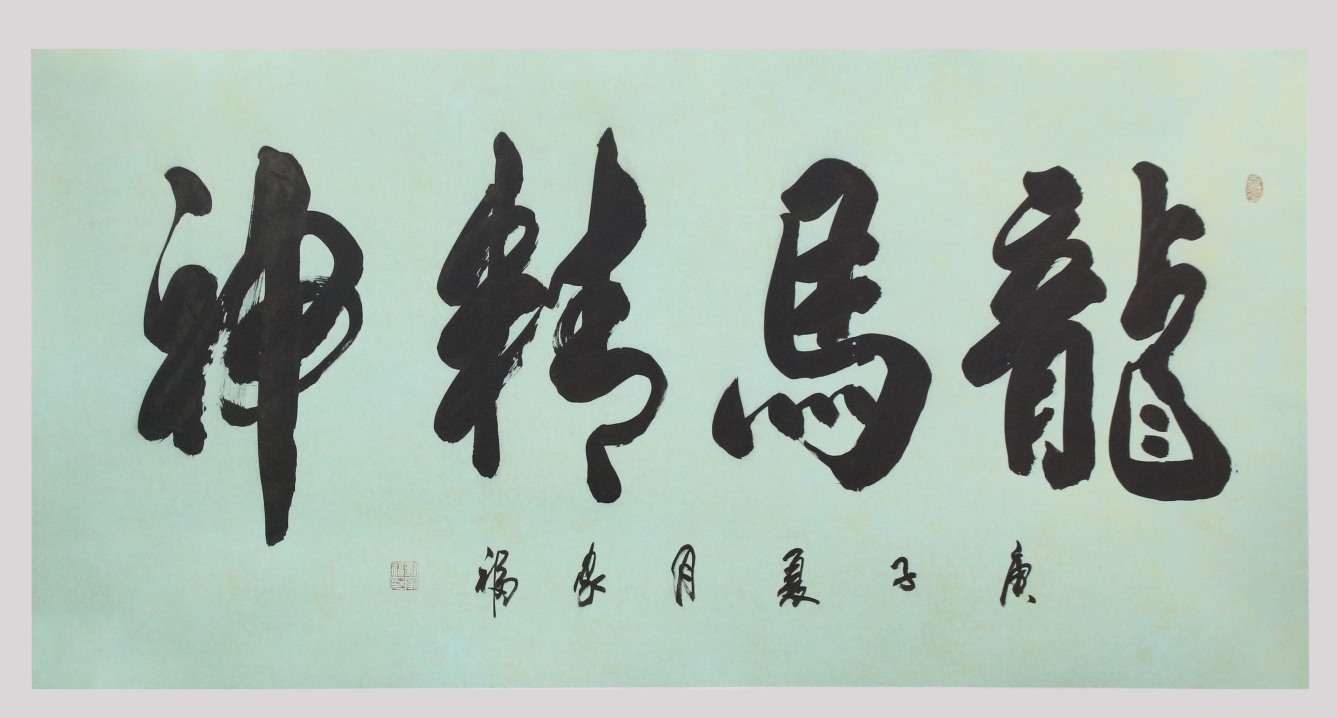 龍馬精神
庚子夏月家福